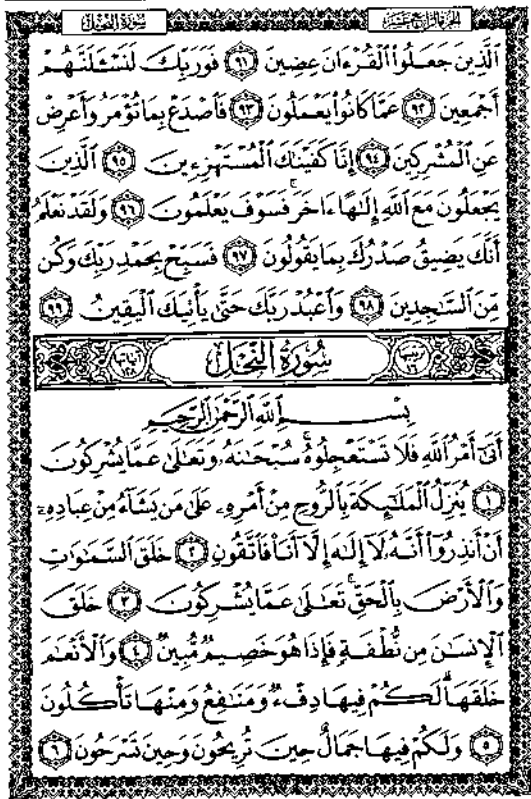 سُورَةُ النَّحْلِ الجزء الرابع عشر
ٱلَّذِينَ جَعَلُوا۟ ٱلْقُرْءَانَ عِضِينَ ٩١ فَوَرَبِّكَ لَنَسْـَٔلَنَّهُمْ
أَجْمَعِينَ ٩٢ عَمَّا كَانُوا۟ يَعْمَلُونَ ٩٣ فَٱصْدَعْ بِمَا تُؤْمَرُ وَأَعْرِضْ
عَنِ ٱلْمُشْرِكِينَ ٩٤ إِنَّا كَفَيْنَٰكَ ٱلْمُسْتَهْزِءِينَ ٩٥ ٱلَّذِينَ
يَجْعَلُونَ مَعَ ٱللَّهِ إِلَٰهًا ءَاخَرَ ۚ فَسَوْفَ يَعْلَمُونَ ٩٦ وَلَقَدْ نَعْلَمُ
أَنَّكَ يَضِيقُ صَدْرُكَ بِمَا يَقُولُونَ ٩٧ فَسَبِّحْ بِحَمْدِ رَبِّكَ وَكُن
مِّنَ ٱلسَّٰجِدِينَ ٩٨ وَٱعْبُدْ رَبَّكَ حَتَّىٰ يَأْتِيَكَ ٱلْيَقِينُ ٩٩
ترتيبها ١٦ سُورَةُ النَّحْلِ آياتها ١٢٨
بِسْمِ ٱللَّهِ ٱلرَّحْمَٰنِ ٱلرَّحِيمِ
أَتَىٰٓ أَمْرُ ٱللَّهِ فَلَا تَسْتَعْجِلُوهُ ۚ سُبْحَٰنَهُۥ وَتَعَٰلَىٰ عَمَّا يُشْرِكُونَ
١ يُنَزِّلُ ٱلْمَلَٰٓئِكَةَ بِٱلرُّوحِ مِنْ أَمْرِهِۦ عَلَىٰ مَن يَشَآءُ مِنْ عِبَادِهِۦٓ
أَنْ أَنذِرُوٓا۟ أَنَّهُۥ لَآ إِلَٰهَ إِلَّآ أَنَا۠ فَٱتَّقُونِ ٢ خَلَقَ ٱلسَّمَٰوَٰتِ
وَٱلْأَرْضَ بِٱلْحَقِّ ۚ تَعَٰلَىٰ عَمَّا يُشْرِكُونَ ٣ خَلَقَ
ٱلْإِنسَٰنَ مِن نُّطْفَةٍ فَإِذَا هُوَ خَصِيمٌ مُّبِينٌ ٤ وَٱلْأَنْعَٰمَ
خَلَقَهَا ۗ لَكُمْ فِيهَا دِفْءٌ وَمَنَٰفِعُ وَمِنْهَا تَأْكُلُونَ
٥ وَلَكُمْ فِيهَا جَمَالٌ حِينَ تُرِيحُونَ وَحِينَ تَسْرَحُونَ ٦